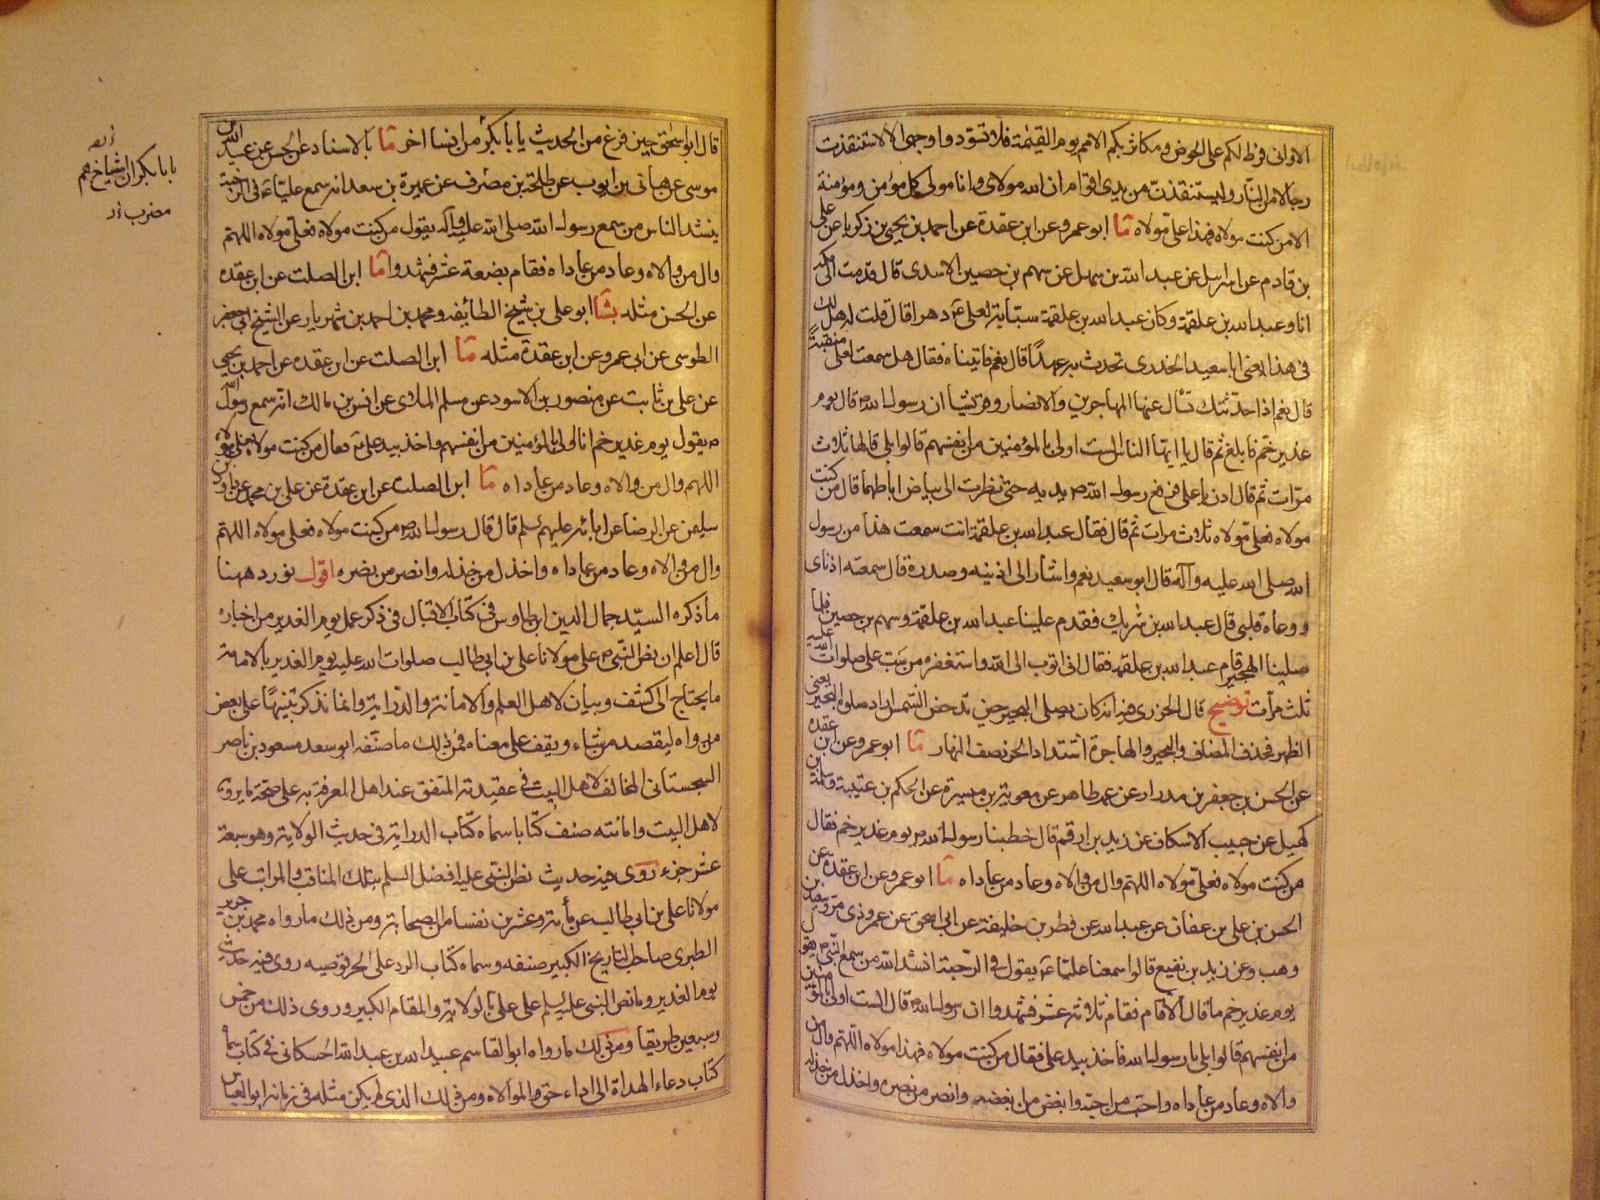 الا وانى فرطكم على الحوض ومكاثر بكم الامم يوم القيمة فلا تسودوا وجهى الا لاستنقذن
رجالا من النار وليستنقذن من يدى اقوام ان الله مولاى وانا مولى كل مؤمن ومؤمنة
الا من كنت مولاه فهذا على مولاه ما ابو عمرو عن ابن عقدة عن احمد بن يحيى بن زكريا عن على
بن قادم عن اسرائيل عن عبد الله بن شريك عن سهم بن حصين الاسدى قال قدمت الى مكة
انا وعبد الله بن علقمة وكان عبد الله بن علقمة سبابة لعلى ع دهرا قال قلت له هل لك
فى هذا يعنى ابا سعيد الخدرى تحدث به عهدا قال نعم فاتيناه فقال هل سمعت لعلى منقبة
قال نعم اذا حدثتك تسأل عنها المهاجرين والانصار وقريشا ان رسول الله ص قال يوم
غدير خم فابلغ ثم قال يا ايها الناس الست اولى بالمؤمنين من انفسهم قالوا بلى قالها ثلاث
مرات ثم قال ادن يا على فرفع رسول الله ص يديه حتى نظرت الى بياض اباطهما قال من كنت
مولاه فعلى مولاه ثلاث مرات ثم قال فقال عبد الله بن علقمة انت سمعت هذا من رسول
الله صلى الله عليه وآله قال ابو سعيد نعم واشار الى اذنيه وصدره قال سمعته اذناى
ووعاه قلبى قال عبد الله بن شريك فقدم علينا عبد الله بن علقمة وسهم بن حصين فلما
صلينا الهجير قام عبد الله بن علقمة فقال انى اتوب الى الله واستغفره من سب على صلوات الله عليه
ثلث مرات توضيح قال الجزرى فيه انه كان يصلى الهجير حين تدحض الشمس اراد صلوة الهجير يعنى
الظهر فحذف المضاف والهجير والهاجرة اشتداد الحر نصف النهار ما ابو عمرو عن ابن عقده
عن الحسن بن جعفر بن مدرار عن عمه طاهر عن معوية بن ميسرة عن الحكم بن عتيبة وسلمة بن
كهيل عن حبيب الاسكاف عن زيد بن ارقم قال خطبنا رسول الله ص يوم غدير خم فقال
من كنت مولاه فعلى مولاه اللهم وال من والاه وعاد من عاداه ما ابو عمرو عن ابن عقدة عن
الحسن بن على بن عفان عن عبد الله عن فطر بن خليفة عن ابى اسحق عن عمرو ذى مر وسعيد بن
وهب وعن زيد بن نفيع قالوا سمعنا عليا ع يقول فى الرحبة انشد الله من سمع النبى ص يقول
يوم غدير خم ما قال الا قام فقام ثلاثة عشر فشهدوا ان رسول الله ص قال الست اولى بالمؤمنين
من انفسهم قالوا بلى يا رسول الله فاخذ بيد على فقال من كنت مولاه فهذا مولاه اللهم وال من
والاه وعاد من عاداه واحب من احبه وابغض من ابغضه وانصر من نصره واخذل من خذله
قال ابو اسحق حين فرغ من الحديث يا با بكر من انسا اخر ما بالاسناد عن الحسن عن عبيد الله بن
موسى عن هانى بن ايوب عن طلحة بن مصرف عن عميرة بن سعد انه سمع عليا ع فى الرحبة
ينشد الناس من سمع رسول الله صلى الله عليه وآله يقول من كنت مولاه فعلى مولاه اللهم
وال من والاه وعاد من عاداه فقام بضعة عشر فشهدوا ما ابن الصلت عن ابن عقده
عن الحسن مثله بشا ابو على بن شيخ الطائفه ومحمد بن احمد بن شهريار عن الشيخ ابى جعفر
الطوسى عن ابى عمرو عن ابن عقدة مثله ما ابن الصلت عن ابن عقده عن احمد بن يحيى
عن على بن ثابت عن منصور بن الاسود عن مسلم الملائى عن انس بن مالك انه سمع رسول الله
ص يقول يوم غدير خم انا اولى بالمؤمنين من انفسهم واخذ بيد على ع فقال من كنت مولاه فعلى مولاه
اللهم وال من والاه وعاد من عاداه ما ابن الصلت عن ابن عقدة عن على بن محمد عن داود بن
سليمن عن الرضا عن ابائه عليهم السلم قال قال رسول الله ص من كنت مولاه فعلى مولاه اللهم
وال من والاه وعاد من عاداه واخذل من خذله وانصر من نصره اقول نورد ههنا
ما ذكره السيد جمال الدين ابن طاوس فى كتاب الاقبال فى ذكر عمل يوم الغدير من اخباره
قال اعلم ان نص النبى ص على مولانا على بن ابى طالب صلوات الله عليه يوم الغدير بالامامة
ما يحتاج الى كشف وبيان لاهل العلم والامانة والدراية وانما نذكر تنبيها على بعض
من رواه ليقصد من شاء ويقف على معناه فمن ذلك ما صنفه ابو سعد مسعود بن ناصر
السجستانى المخالف لاهل البيت فى عقيدته المتفق عند اهل المعرفة به على صحة ما يرويه
لاهل البيت وامانته صنف كتابا سماه كتاب الدراية فى حديث الولاية وهو سبعة
عشر جزء روى فيه حديث نص النبى عليه افضل السلم بتلك المناقب والمراتب على
مولانا على بن ابى طالب عن مأة وعشرين نفسا من الصحابة ومن ذلك ما رواه محمد بن جرير
الطبرى صاحب التاريخ الكبير صنفه وسماه كتاب الرد على الحرقوصيه روى فيه حديث
يوم الغدير وما نص النبى عليه السلم على على بالولاية والمقام الكبير وروى ذلك من خمس
وسبعين طريقا ومن ذلك ما رواه ابو القاسم عبيد الله بن عبد الله الحسكانى فى كتاب سماه
كتاب دعاء الهداة الى اداء حق الموالاه ومن ذلك الذى لم يكن مثله فى زمانه ابو العباس
يا با بكر ان اشياخ هم